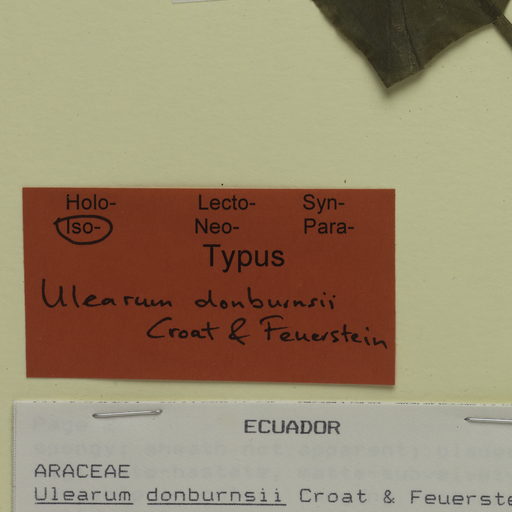 Holo- Lecto- Syn-
Iso- Neo- Para-
Typus
Ulearum donburnsii
Croat & Feuerstein
ECUADOR
ARACEAE
Ulearum donburnsii Croat & Feuerste